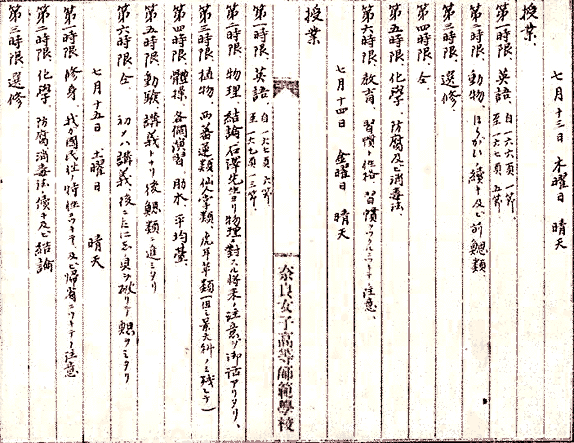 七月十三日 木曜日 晴天
授業、
第一時限、英語、自一六六頁一節、至一六七頁五節、
第二時限、動物、ほうがい、續キ及ビ前鰓類、
第三時限、選修、
第四時限、仝
第五時限、化學、防腐及ビ消毒法、
第六時限、教育、習慣ト性格、習慣ヲツクルニツキテノ注意、
七月十四日 金曜日 晴天
授業
第一時限、英語、自一六七頁六節、至一六九頁一三節、
奈良女子高等師範學校
第二時限、物理、結論、石澤先生ヨリ物理ニ對スル將来ノ注意ノ御話アリタリ、
第三時限、植物、罌蓮類、仙人掌類、虎耳草類(但シ景天科ノミ残シテ)
第四時限、體操、各個演習、肋木、平均臺、
第五時限、動物、講義トナリ後鰓類ニ進ミタリ
第六時限、仝 初メハ講義、後ニたにし貝ヲ破リテ鰓ヲミタリ
七月十五日 土曜日 晴天
第一時限、修身、我ガ國民性ノ特性ニツキテ、及ビ帰省ニツキテノ注意
第二時限、化學、防腐消毒法ノ續キ及ビ結論
第三時限、選修